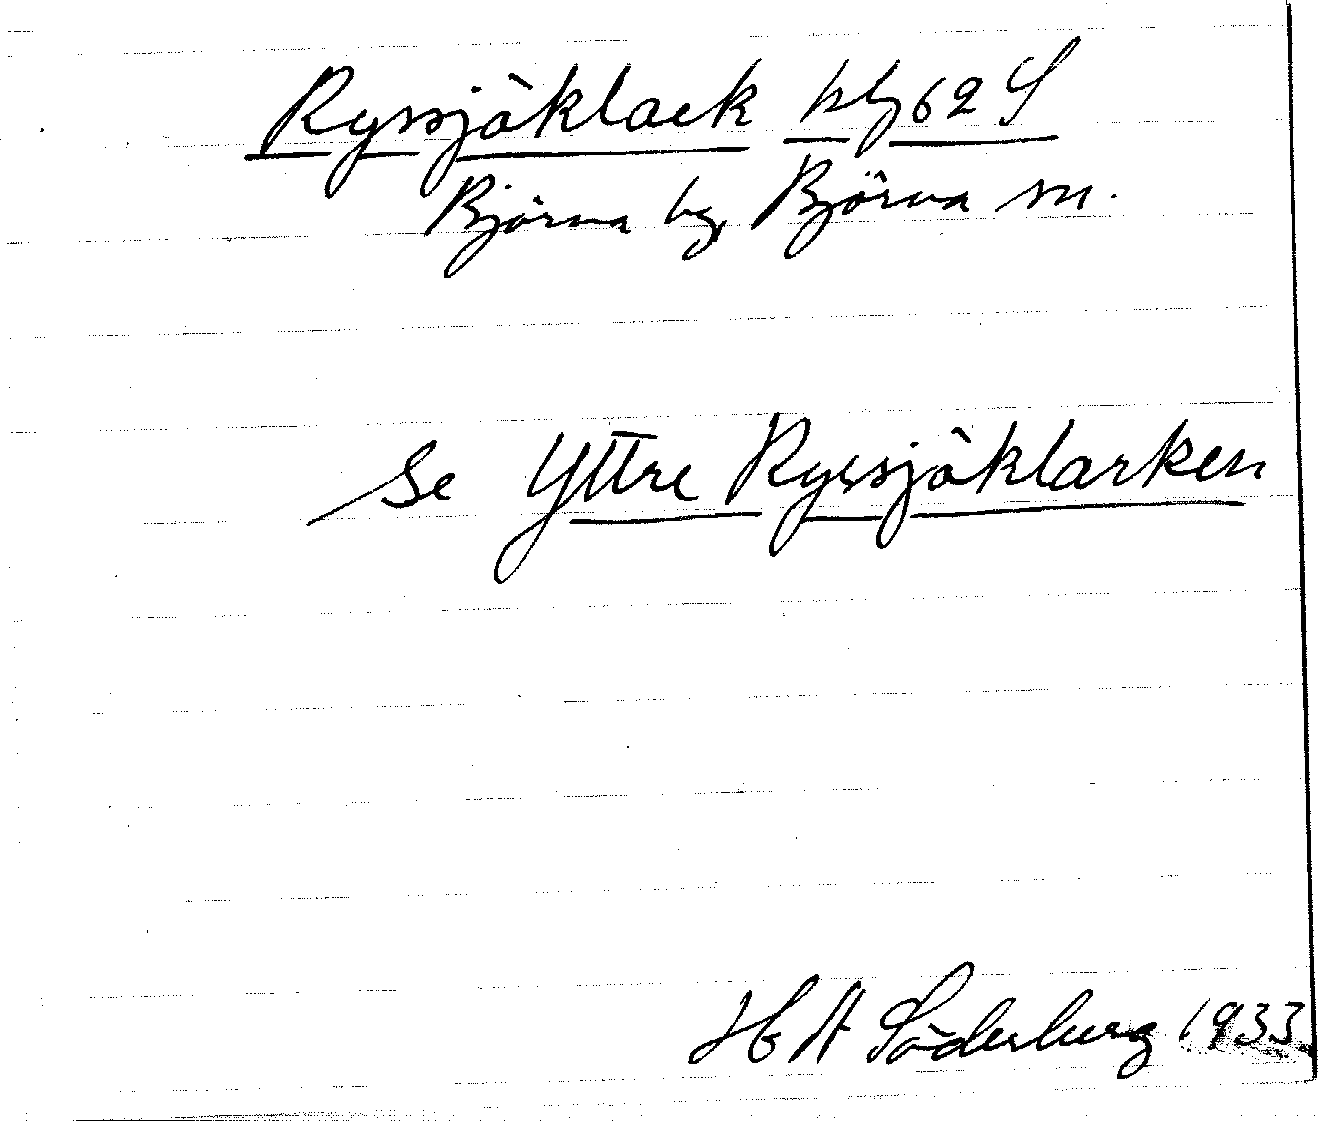 Ryssjöklack kbj 62 S
Björna by, Björna sn.
Se Yttre Ryssjöklarken
H A Söderberg 1933